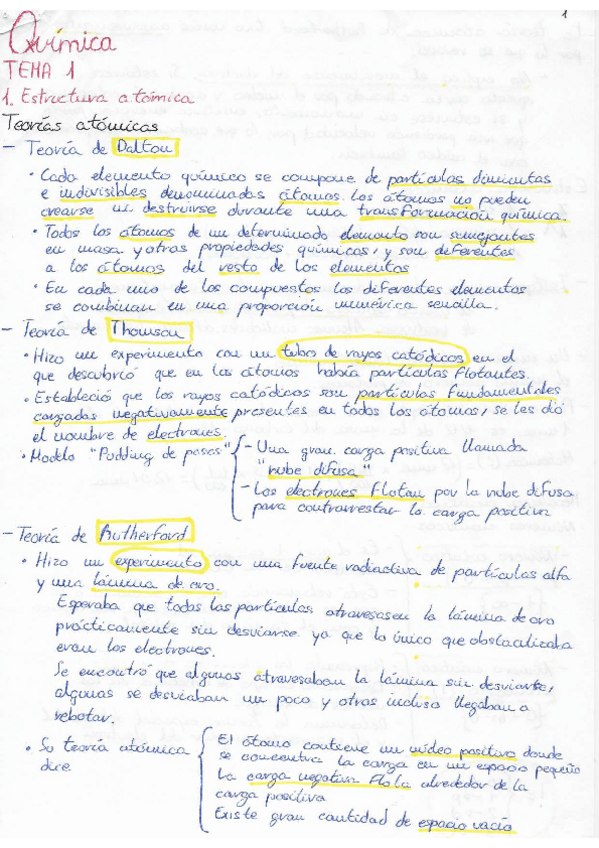 1
Química
TEMA 1
1. Estructura atómica
Teorías atómicas
- Teoría de Dalton
• Cada elemento químico se compone de partículas diminutas
e indivisibles denominadas átomos. Los átomos no pueden
crearse ni destruirse durante una transformación química.
• Todos los átomos de un determinado elemento son semejantes
en masa y otras propiedades químicas, y son deferentes
a los átomos del resto de los elementos
• En cada uno de los compuestos los deferentes elementos
se combinan en una proporción numérica sencilla.
- Teoría de Thomson
• Hizo un experimento con un tubo de rayos catódicos en el
que descubrió que en los átomos había partículas flotantes.
• Estableció que los rayos catódicos son partículas fundamentales
cargadas negativamente presentes en todos los átomos, se les dió
el nombre de electrones.
• Modelo "Pudding de pasas" { - Una gran carga positiva llamada
"nube difusa"
- Los electrones flotan por la nube difusa
para contrarrestar la carga positiva
- Teoría de Rutherford
• Hizo un experimento con una fuente radiactiva de partículas alfa
y una lámina de oro.
Esperaba que todas las partículas atravesasen la lámina de oro
prácticamente sin desviarse ya que lo único que obstaculizaba
eran los electrones.
Se encontró que algunas atravesaban la lámina sin desviarse,
algunas se desviaban un poco y otras incluso llegaban a
rebotar.
• Su teoría atómica dice { El átomo contiene un núcleo positivo donde
se concentra la carga en un espacio pequeño
La carga negativa flota alrededor de la
carga positiva
Existe gran cantidad de espacio vacío